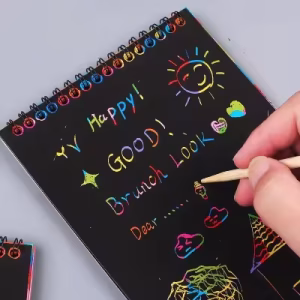 Happy!
GOOD!
Brunch Look
Dear......